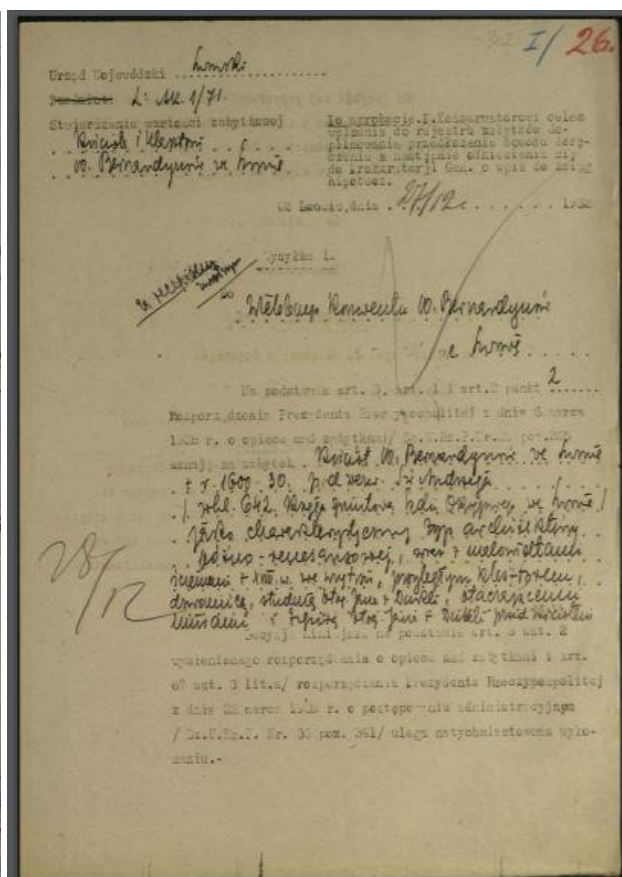 I/ 26.
Urząd Wojewódzki Lwowski
L: AK. 1/71.
Stwierdzenie wartości zabytkowej
Kościoła i Klasztoru
OO. Bernardynów we Lwowie
Po aprobacie P. Konserwatorowi celem
wpisania do rejestru zabytków do-
pilnowania przedłożenia dowodu dorę-
czenia a następnie odniesienia się
do Prokuratorji Gen. o wpis do ksiąg
hipotecz.
We Lwowie, dnia 27/12
Wysyłka 1.
Do
Wielebnego Konwentu OO. Bernardynów
we Lwowie
Na podstawie art. 3, art. 1 i art. 2 punkt 2
Rozporządzenia Prezydenta Rzeczypospolitej z dnia 6 marca
1928 r. o opiece nad zabytkami/ Dz.U.Rz.P.Nr.
uznaję za zabytek Kościół OO. Bernardynów we Lwowie
z r. 1600-30. pod wezw. Św. Andrzeja
/ whl. 642. Księga gruntowa Sądu Okręgowego we Lwowie/
jako charakterystyczny typ architektury
późno-renesansowej, wraz z malowidłami
ściennemi z XVIII. w. we wnętrzu, przyległym klasztorem,
dzwonnicą, studnią błog. Jana z Dukli, otaczającemi
murami i figurą błog. Jana z Dukli przed kościołem
28/12
Decyzja niniejsza na podstawie art. 3 ust. 2
wymienionego rozporządzenia o opiece nad zabytkami i art.
87 ust. 3 lit.a/ rozporządzenia Prezydenta Rzeczypospolitej
z dnia 22 marca 1928 r. o postępowaniu administracyjnem
/ Dz.U.Rz.P. Nr. 36 poz. 341/ ulega natychmiastowemu wyko-
naniu.-